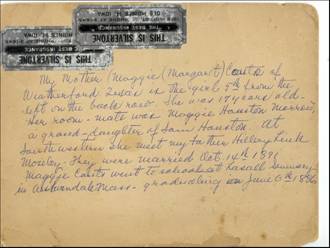 THIS IS SILVERTONE
THIS IS SILVERTONE
My Mother (Maggie (Margaret) Couts of
Weatherford Texas is the girl 5th from the
left on the back row. She was 18 years old.
Her room-mate was Maggie Houston Morrow,
a grand-daughter of Sam Houston. At
Southwestern she met my father Henry
Mosley. They were married Oct. 14th 1891
Maggie Couts went to school at Lasall Seminary
in Auburndale Mass - graduating on June